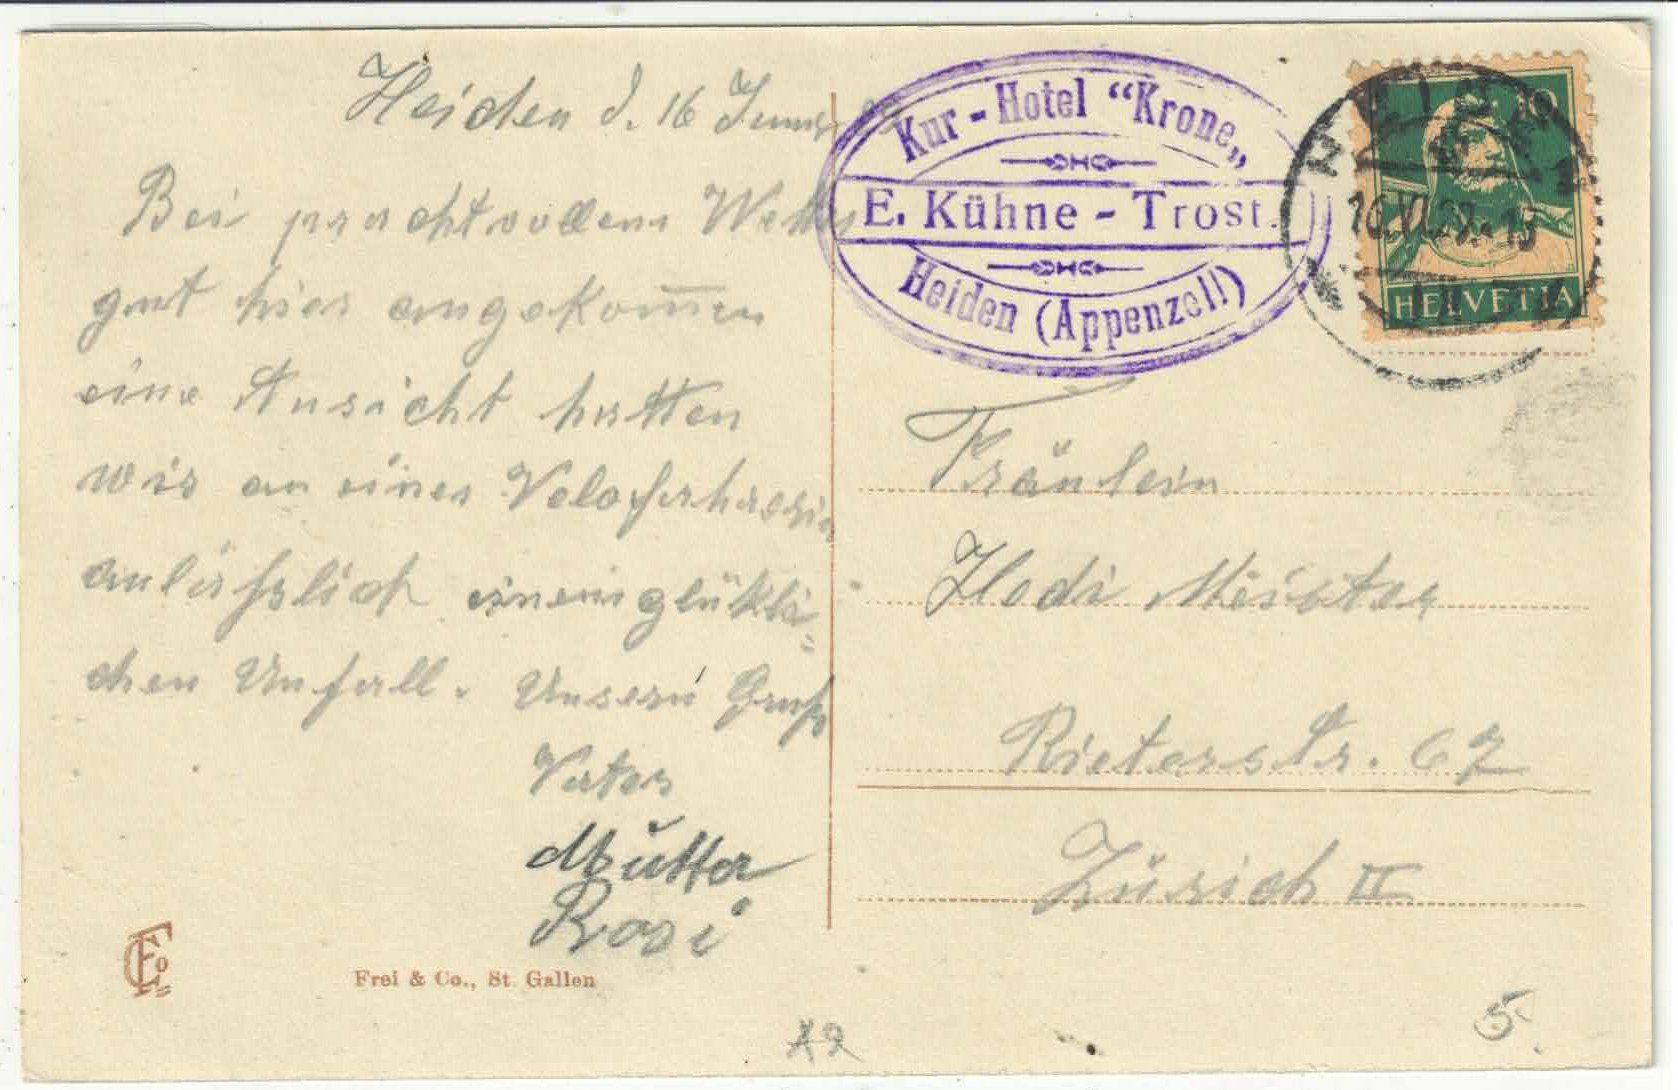 Heiden d. 16 Juni
Bei prachtvollem Wetter
gut hier angekom̄en
eine Ansicht hatten
wir an einer Velofahrerin
anläßlich einem glükli-
chen Unfall. Unsern Gruß
Vater
Mutter
Rosi
Kur-Hotel “Krone„
E. Kühne-Trost.
Heiden (Appenzell)
10
16.VI.29.-15
HELVETIA
Fräulein
Hedi Meister
Rieterstr. 67
Zürich II
Frei & Co., St. Gallen
A2
5.